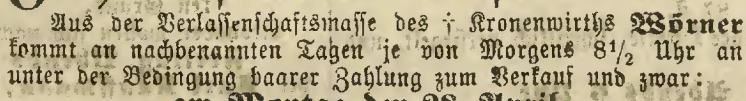 Aus der Verlassenschaftsmasse des † Kronenwirths Wörner
kommt an nachbenannten Tagen je von Morgens 8½ Uhr an
unter der Bedingung baarer Zahlung zum Verkauf und zwar:
am Montag den 28. April